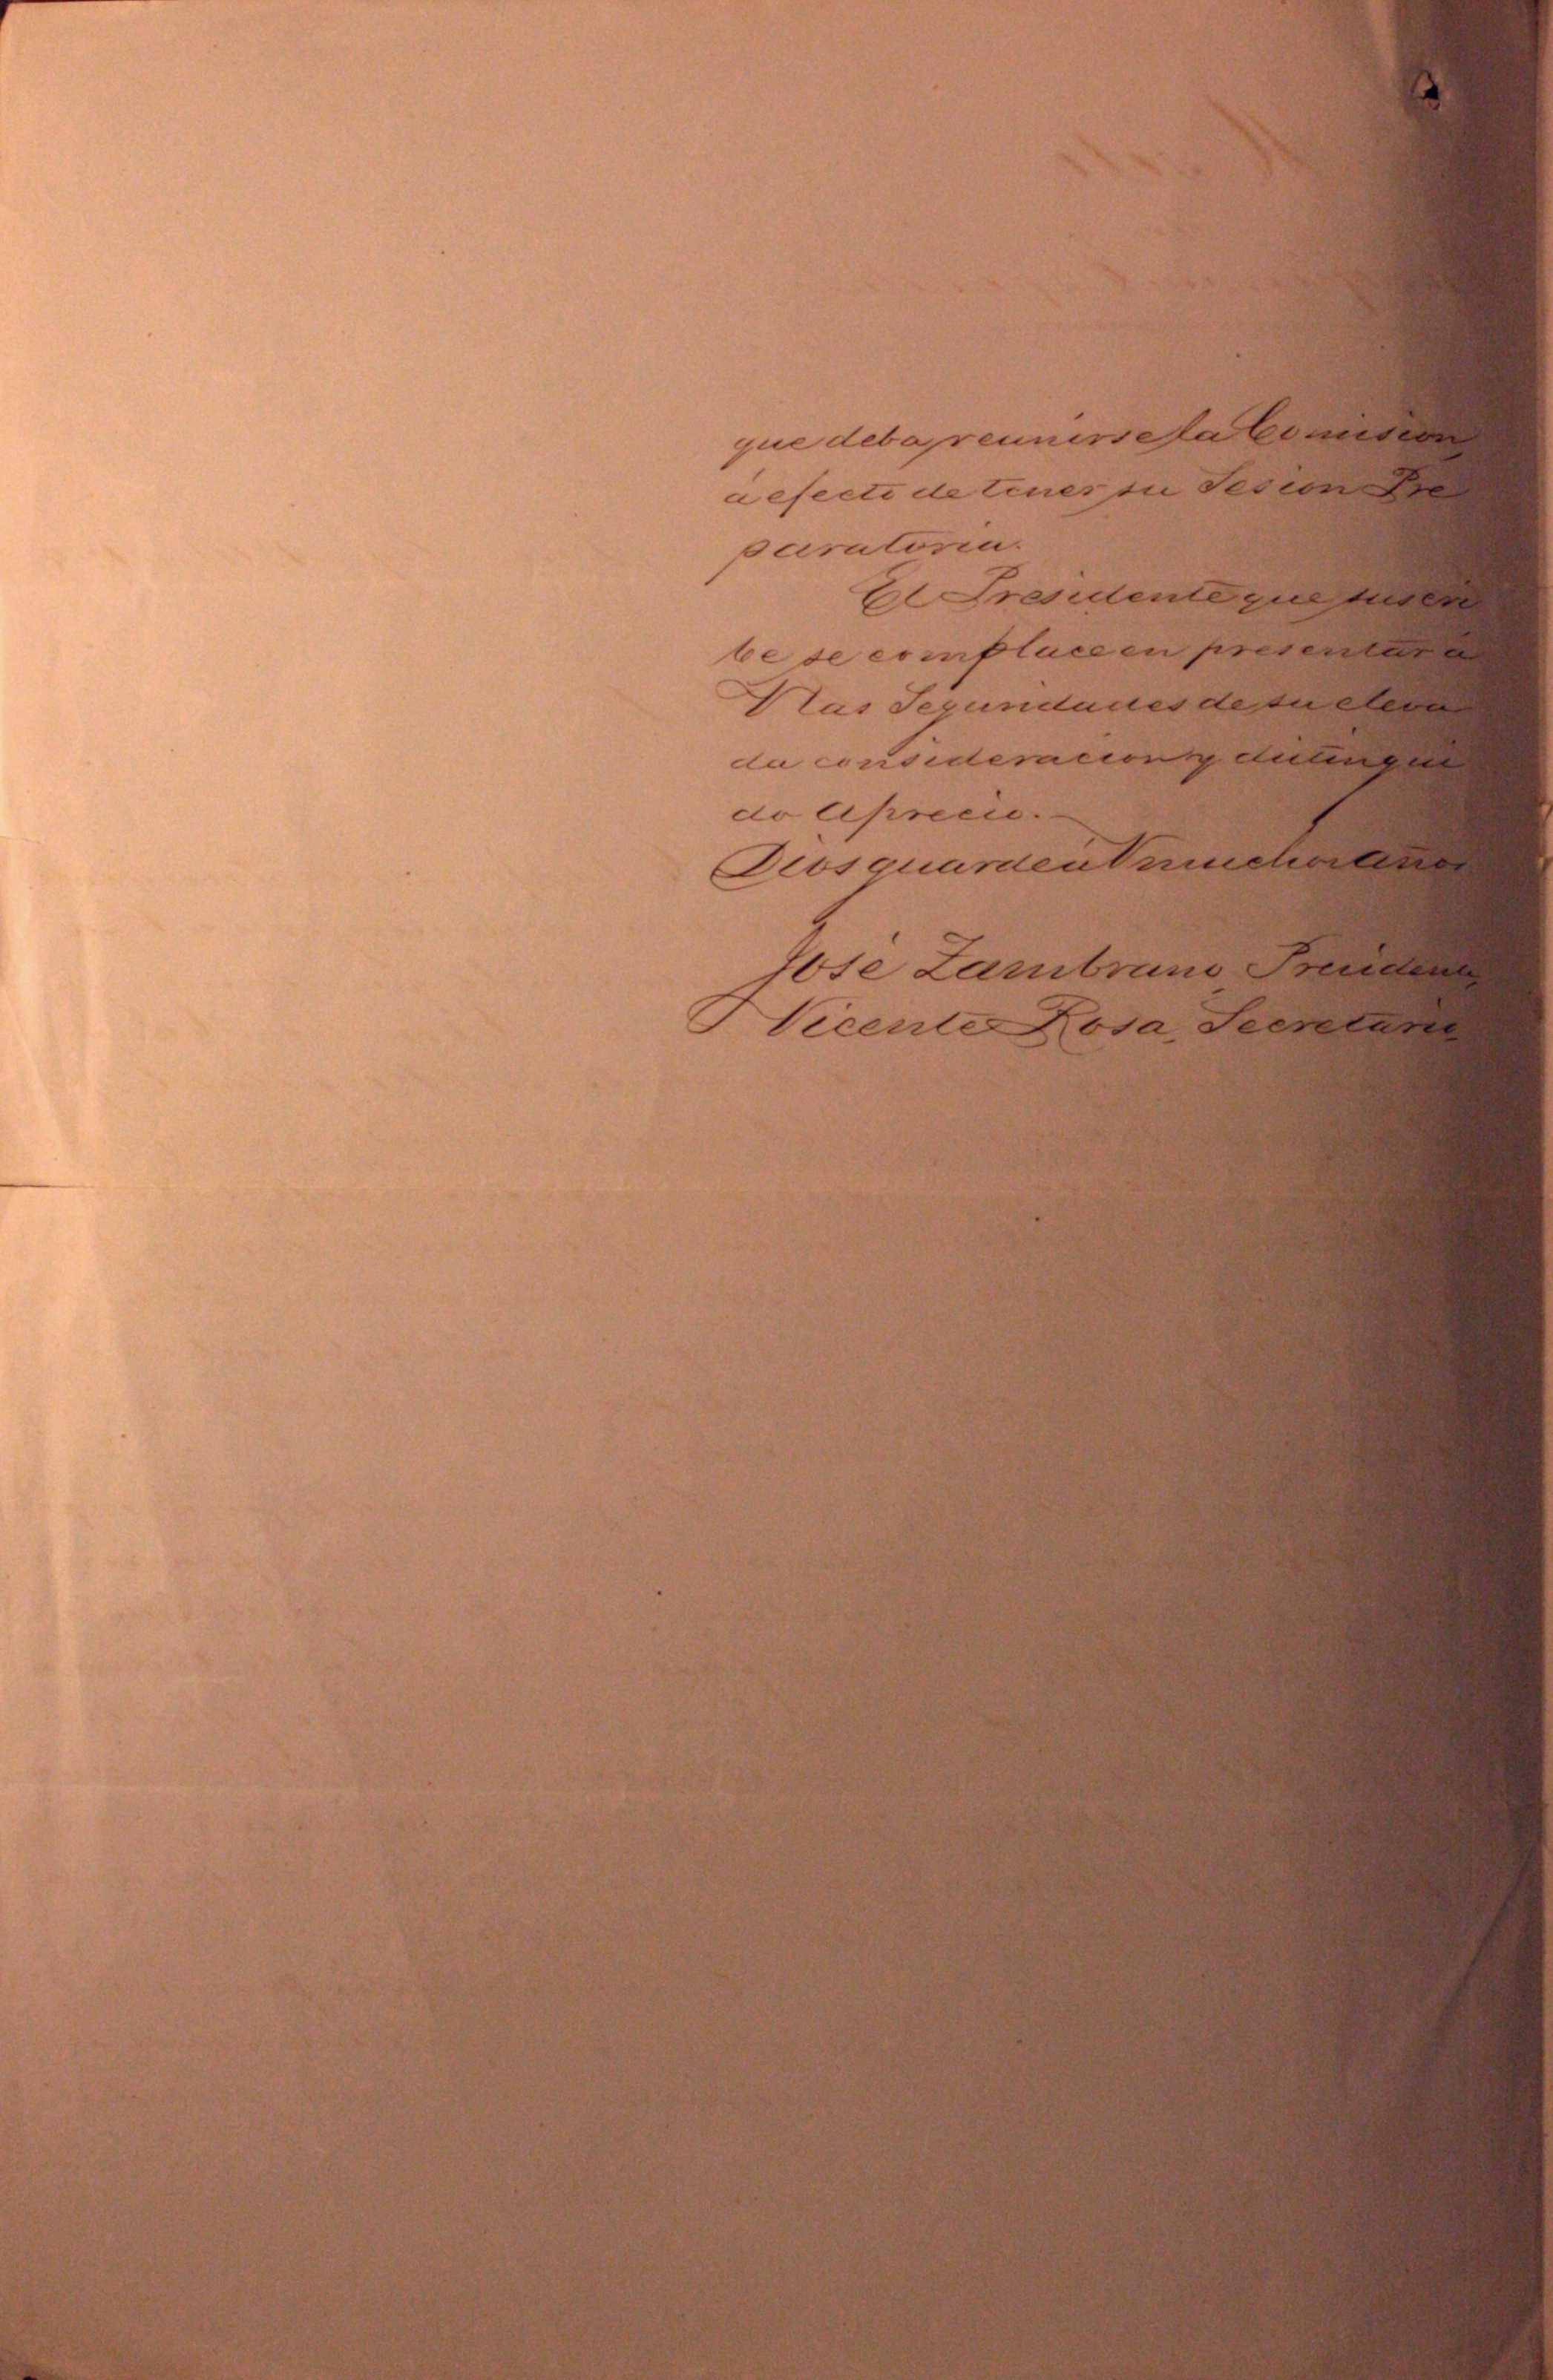 que deba reunirse la Comision,
á efecto de tener su Sesion Pre
paratoria.
El Presidente que suscri
be se complace en presentar á
V las Seguridades de su eleva
da consideracion y distingui
do Aprecio.—
Dios guarde á V muchos años
José Zambrano, Presidente,
Vicente Rosa, Secretario